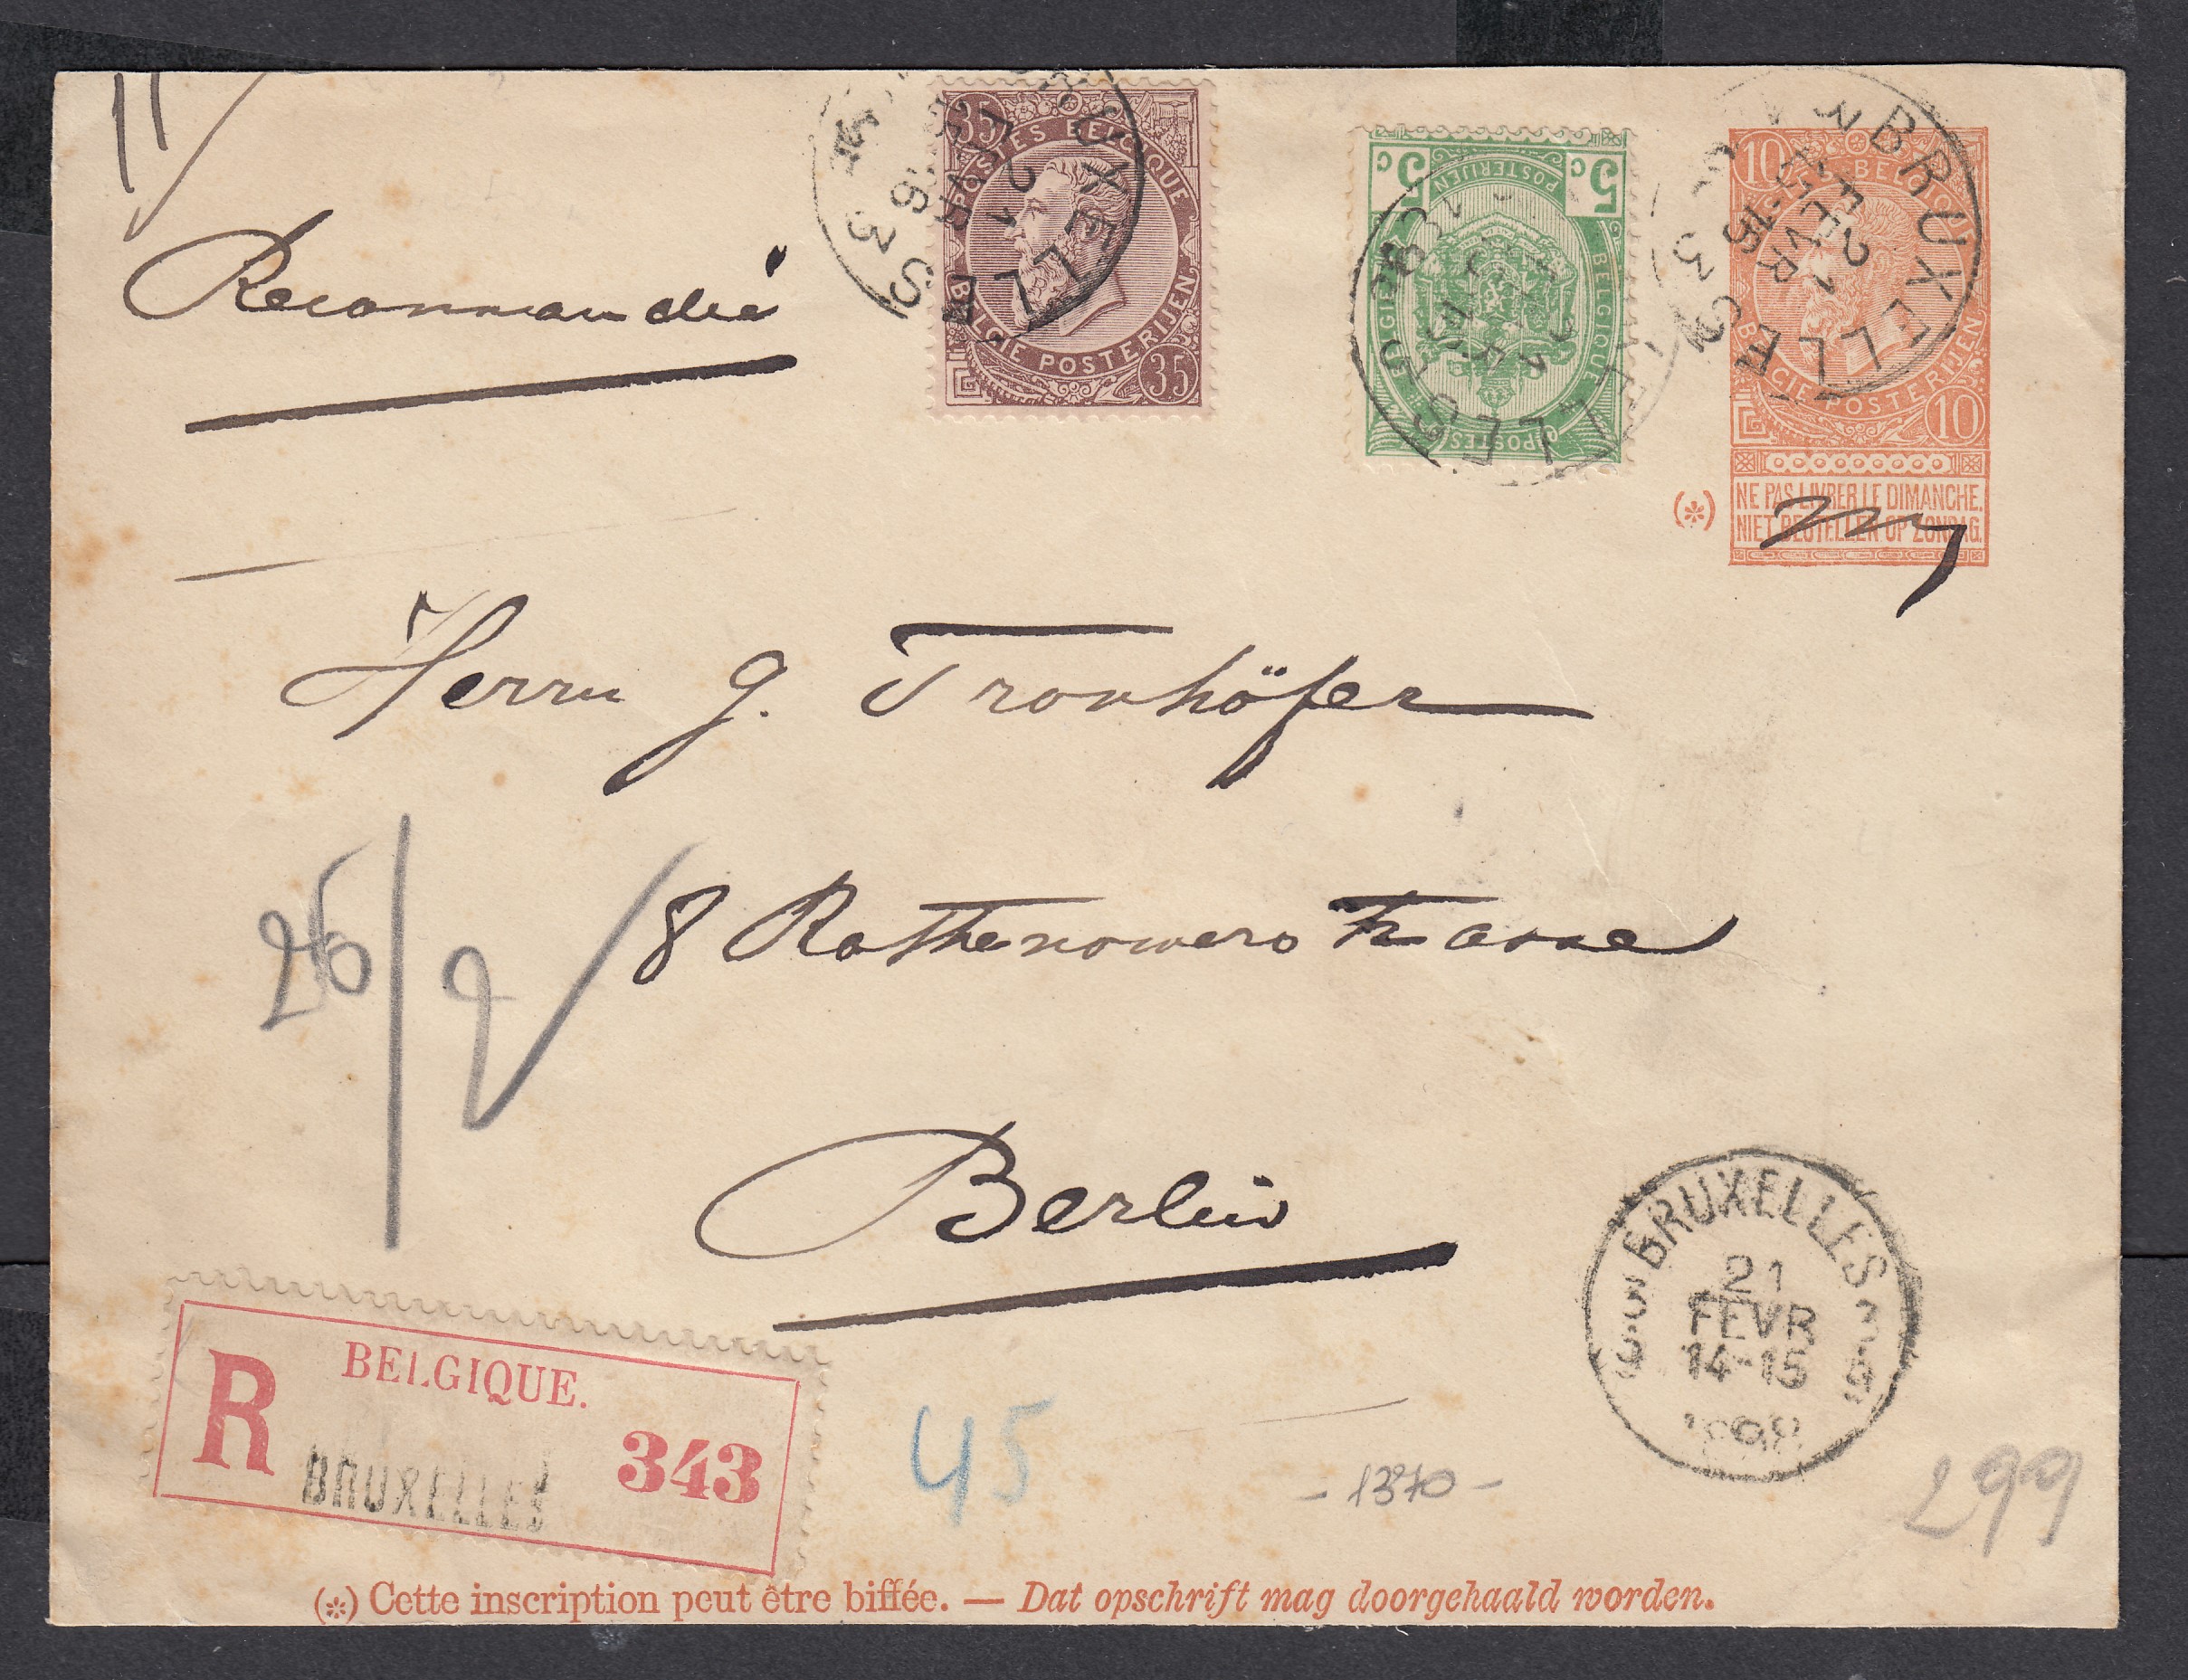 Recommandée
35 35
POSTES BELGIQUE
BELGIE POSTERIJEN
BRUXELLES
21
FEVR
5c 5c
BELGIQUE POSTERIJEN
BELGIE POSTES
10
BELGIQUE
BELGIE POSTERIJEN
10
BRUXELLES
21
FEVR
(*) NE PAS LIVRER LE DIMANCHE.
NIET BESTELLEN OP ZONDAG.
Herrn G. Tronhöfer
8 Rathenowerstrasse
26/2
Berlin
BRUXELLES
21
FEVR
14-15
R BELGIQUE.
BRUXELLES 343
45
- 1370 -
299
(*) Cette inscription peut être biffée. — Dat opschrift mag doorgehaald worden.